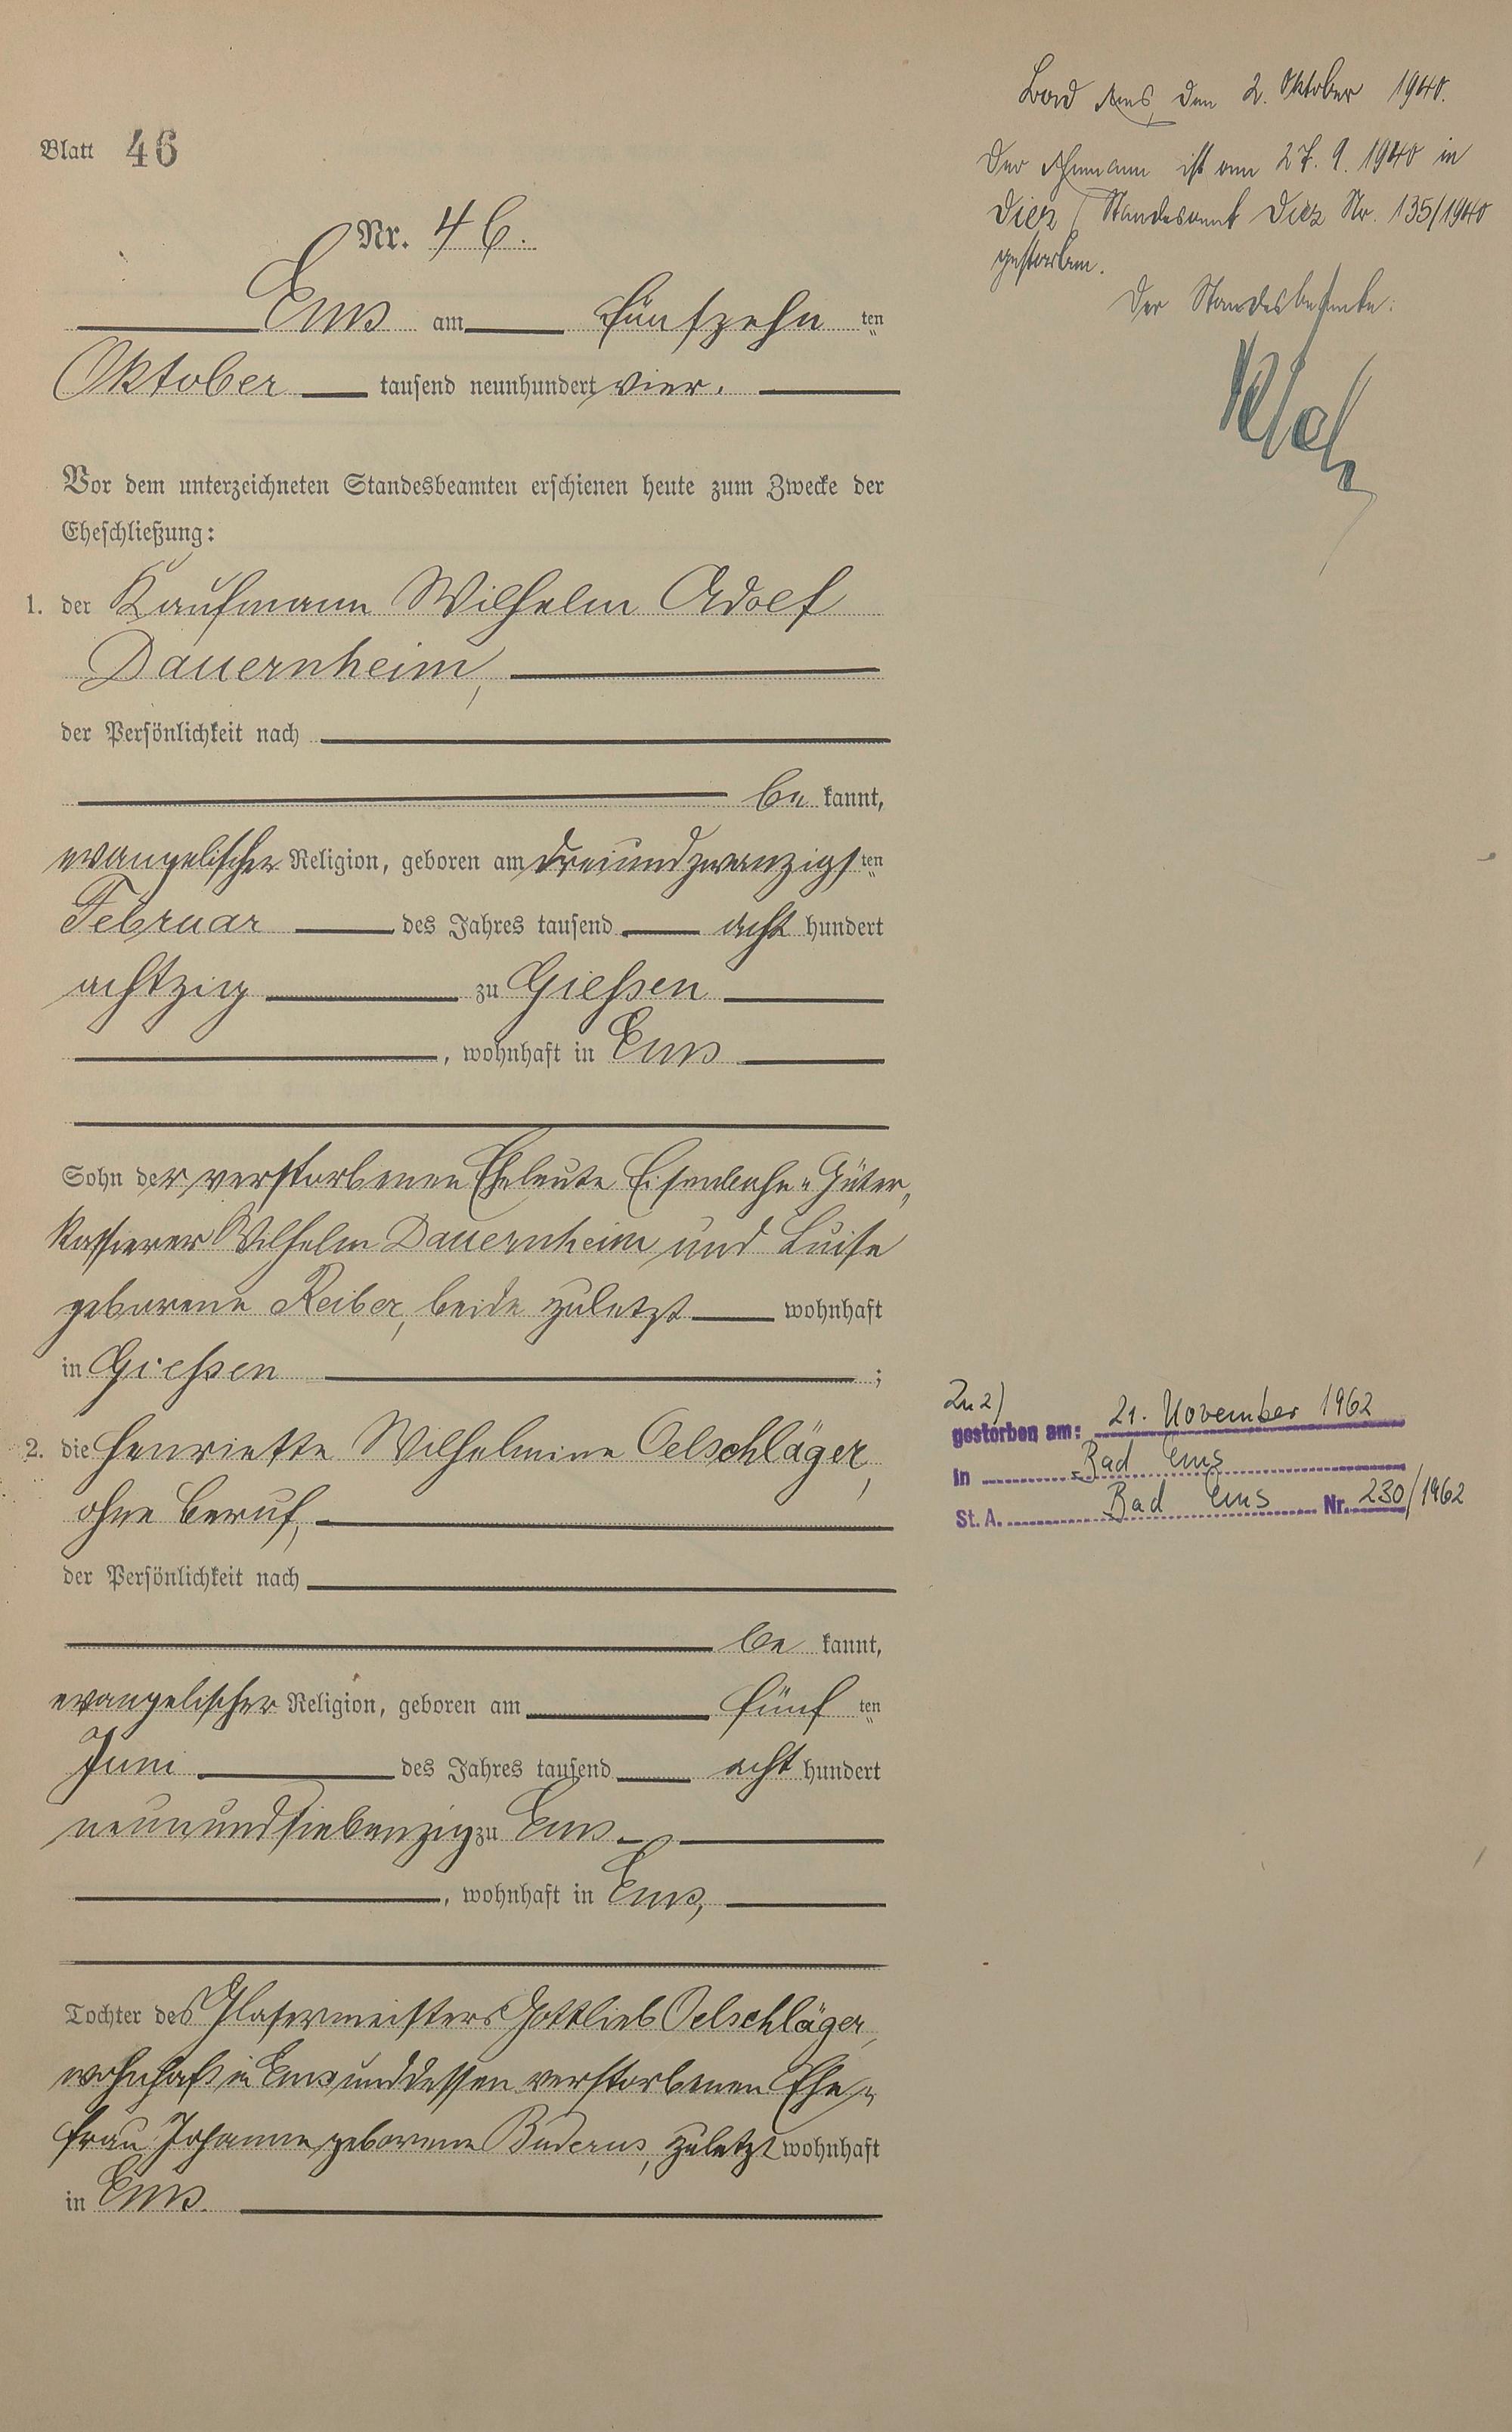 Blatt 46
Nr. 46.
Ems am fünfzehn ten
Oktober tausend neunhundert vier.
Vor dem unterzeichneten Standesbeamten erschienen heute zum Zwecke der
Eheschließung:
1. der Kaufmann Wilhelm Adolf
Dauernheim,
der Persönlichkeit nach
be kannt,
evangelischer Religion, geboren am dreiundzwanzigsten
Februar des Jahres tausend acht hundert
achtzig zu Gießen
, wohnhaft in Ems
Sohn der verstorbenen Eheleute Eisenbahn-Güter-
kassierer Wilhelm Dauernheim und Luise
geborene Reiber, beide zuletzt wohnhaft
in Gießen ;
2. die Henriette Wilhelmine Oelschläger,
ohne Beruf,
der Persönlichkeit nach
be kannt,
evangelischer Religion, geboren am fünf ten
Juni des Jahres tausend acht hundert
neunundsiebenzig zu Ems
, wohnhaft in Ems,
Tochter des Glasermeisters Gottlieb Oelschläger,
wohnhaft in Ems und dessen verstorbenen Ehe-
frau Johanna geborene Buderus, zuletzt wohnhaft
in Ems.
Bad Ems, den 2. Oktober 1940.
Der Ehemann ist am 27. 9. 1940 in
Diez (Standesamt Diez Nr. 135/1940
gestorben.
Der Standesbeamte:
Zu 2)
gestorben am: 21. November 1962
in Bad Ems
St. A. Bad Ems Nr. 230/1962